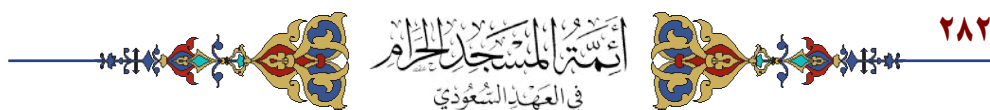 ٢٨٢
أئمة المسجد الحرام
في العهد السعودي